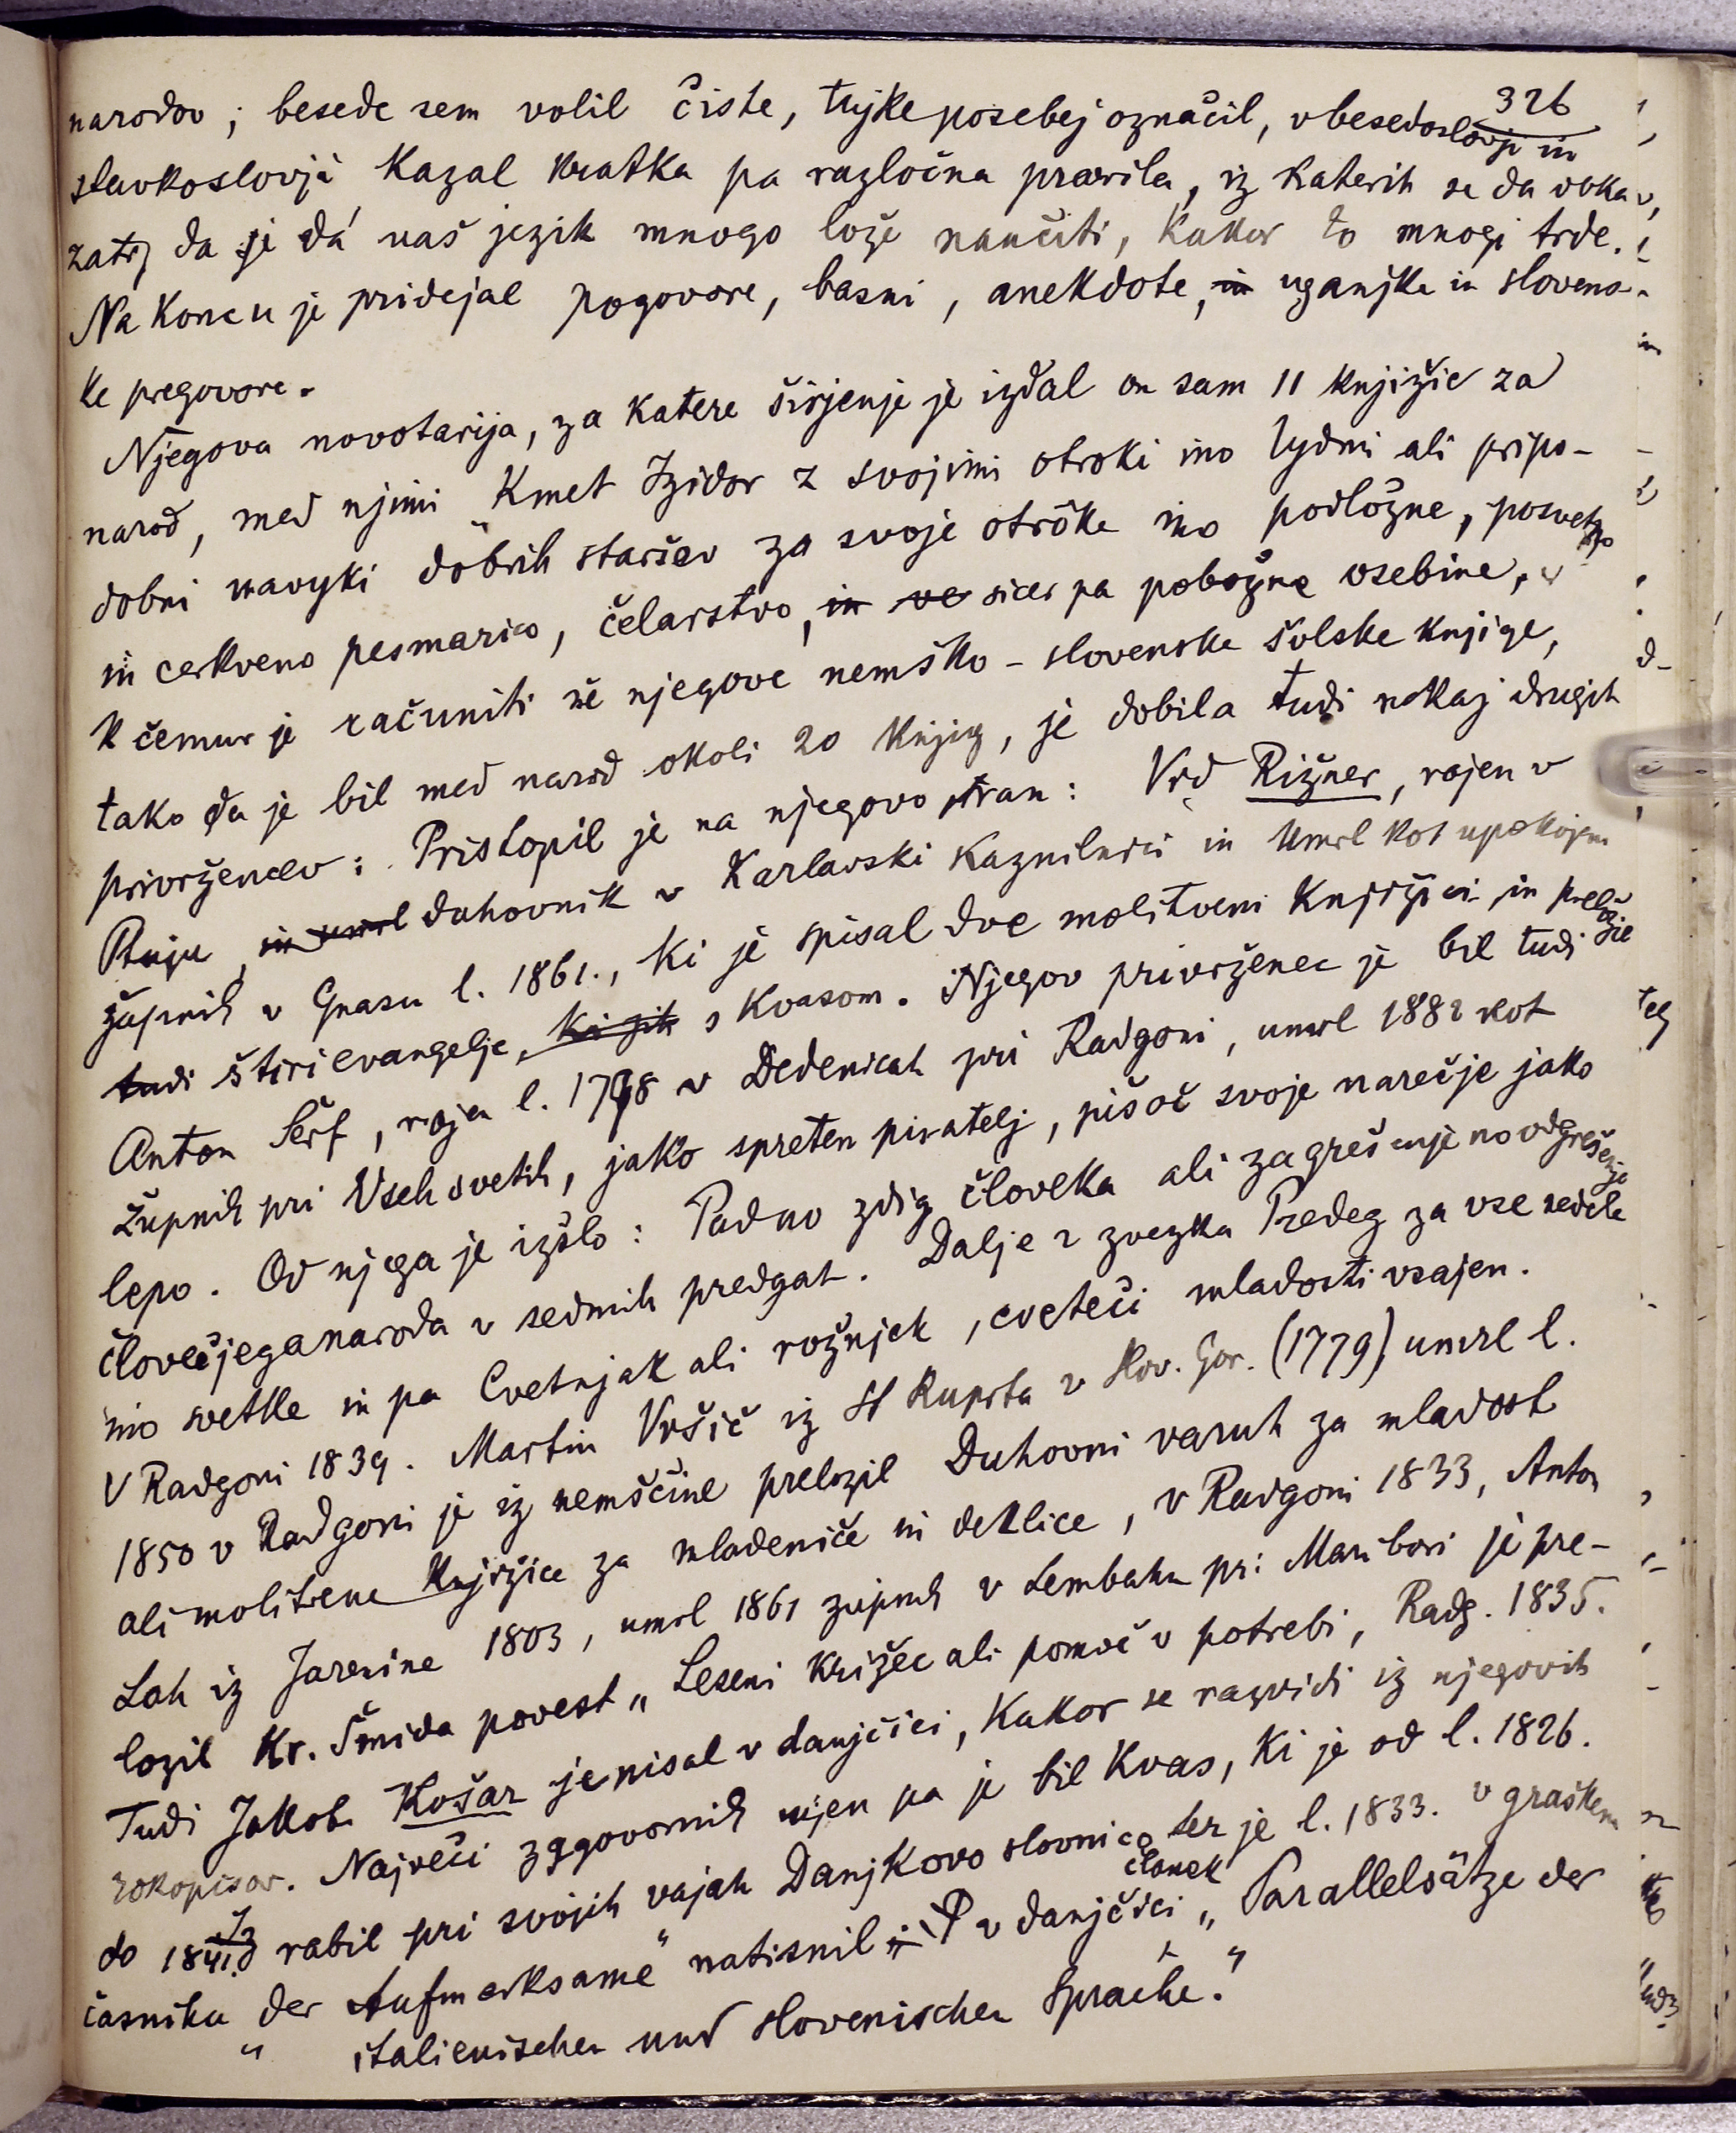 326
narodov; besede sem volil čiste, tujke posebej označil, v besedoslovji in
stavkoslovji kazal kratka pa razločna pravila, iz katerih se da doka-
zati, da se dá naš jezik mnogo lože naučiti, kakor to mnogi trde.
Na koncu je pridejal pogovore, basni, anekdote, in uganjke in slovens-
ke pregovore.
Njegova novotarija, za katere širjenje je izdal on sam 11 knjižic za
narod, med njimi „Kmet Izidor z svojimi otroki ino lydmi ali pripo-
dobni navyki dobrih staršev za svoje otrôke ino podložne, posvetno
in cerkveno pesmarico, čelarstvo, in ve sicer pa pobožne vsebine,
k čemur je računiti še njegove nemško-slovenske šolske knjige,
tako da je bil med narod okoli 20 knjig, je dobila tudi nekaj drugih
privržencev: Pristopil je na njegovo stran: Vid Rižner, rojen v
Ptuju, in umrl duhovnik v Karlavski kaznilnici in umrl kot upokojeni
župnik v Gnasu l. 1861., ki je spisal dve molitveni knjižici in preložil
tudi štiri evangelje, s Kvasom. Njegov privrženec je bil tudi
Anton Šerf, rojen l. 1798 v Dedenicah pri Radgoni, umrl 1882 kot
župnik pri Vseh svetih, jako spreten pisatelj, pišoč svoje narečje jako
lepo. Od njega je izšlo: Pad no zdig človeka ali zagrešenje no odgrešenje
človečjega naroda v sedmih predgah. Dalje 2 zvezka Predeg za vse nedele
ino svetke in pa Cvetnjak ali rožnjek, cveteči mladosti vsajen.
V Radgoni 1839. Martin Vršič iz St Ruperta v Slov. Gor. (1779) umrl l.
1850 v Radgoni je iz nemščine preložil Duhovni varuh za mladost
ali molitvene knjižice za mladeniče in deklice, v Radgoni 1833, Anton
Lah iz Jarenine 1803, umrl 1861 župnik v Lembahu pri Maribori je pre-
ložil Kr. Šmida povest „Leseni križec ali pomoč v potrebi, Radg. 1835.
Tudi Jakob Košar je pisal v danjčici, kakor se razvidi iz njegovih
rokopisov. Največi zagovornik njen pa je bil Kvas, ki je od l. 1826.
do 1841. rabil pri svojih vajah Danjkovo slovnico ter je l. 1833. v graškem
časniku „der Aufmerksame“ natisnil v danjčici članek „Parallelsätze der
italienischen und slovenischen Sprache.“